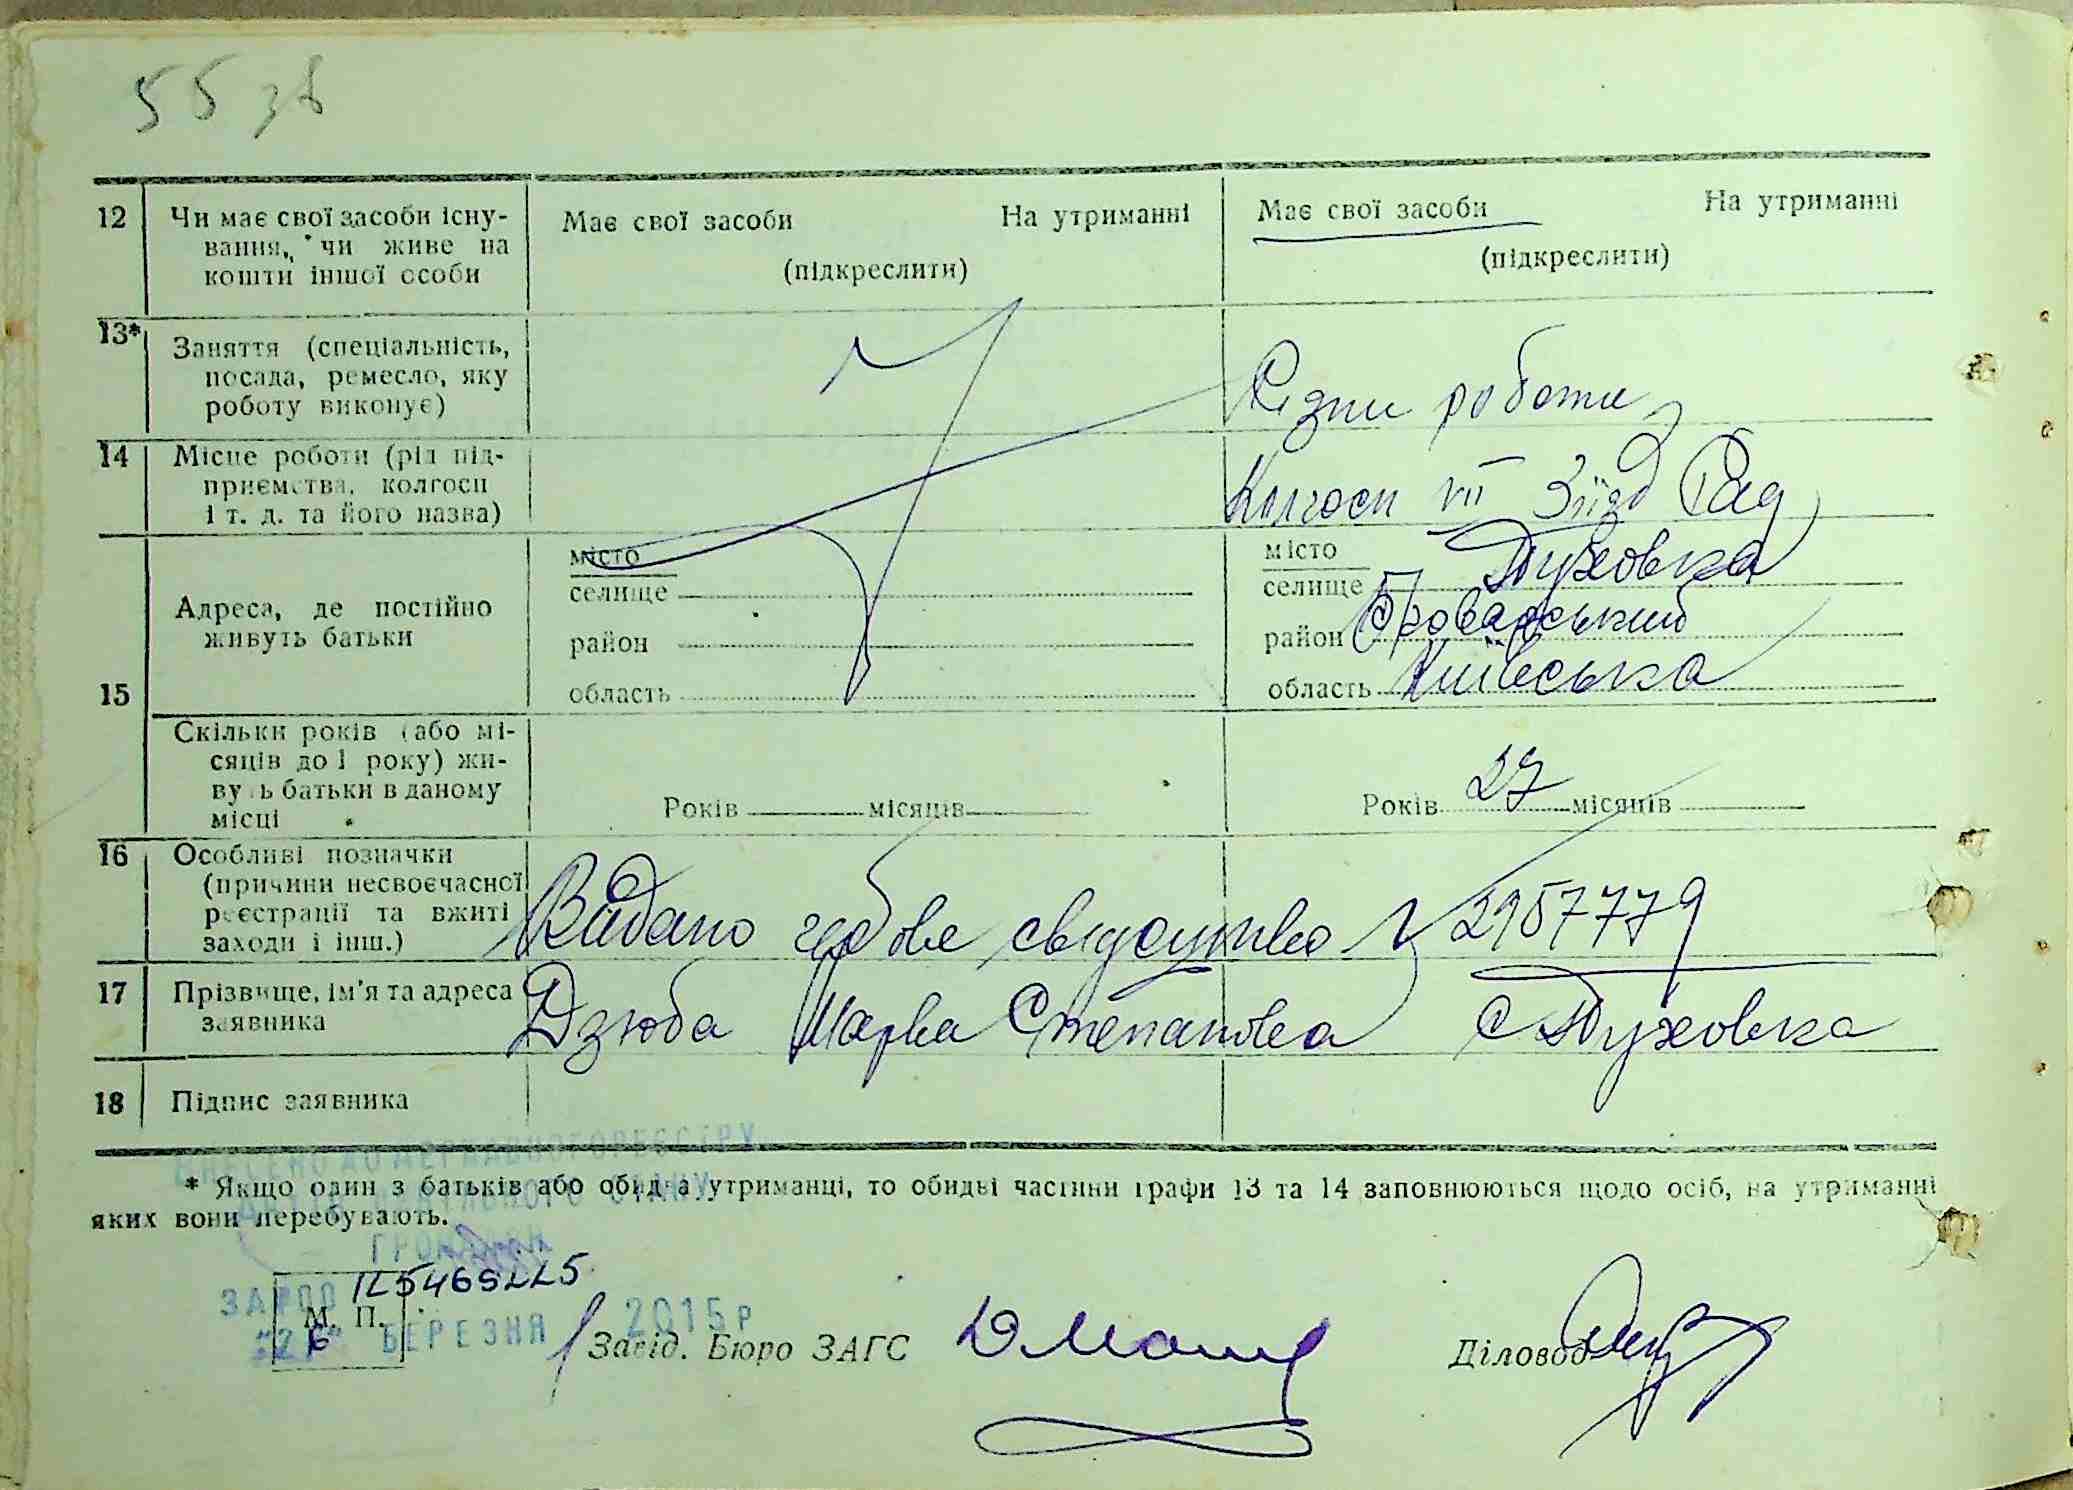 55 зв
12 Чи має свої засоби існу-
вання, чи живе на
кошти іншої особи
Має свої засоби На утриманні
(підкреслити)
Має свої засоби На утриманні
(підкреслити)
13* Заняття (спеціальність,
посада, ремесло, яку
роботу виконує)
Різни роботи
14 Місце роботи (рід під-
приємства, колгосп
і т. д. та його назва)
Колгосп VII Зїізд Рад
15 Адреса, де постійно
живуть батьки
місто
селище
район
область
місто
селище Пуховка
район Броварський
область Київська
Скільки років (або мі-
сяців до 1 року) жи-
вуть батьки в даному
місці
Років місяців
Років 27 місяців
16 Особливі позначки
(причини несвоєчасної
реєстрації та вжиті
заходи і інш.)
Видано гербове свідоцтво № 2957779
17 Прізвище, ім'я та адреса
заявника
Дзюба Марва Степановна с Пуховка
18 Підпис заявника
ВНЕСЕНО ДО ДЕРЖАВНОГО РЕЄСТРУ
* Якщо один з батьків або обидва утриманці, то обидві частини графи 13 та 14 заповнюються щодо осіб, на утриманні
яких вони перебувають.
ГРОМАДЯН
М. П.
БЕРЕЗНЯ 2015 р
Завід. Бюро ЗАГС
Діловод